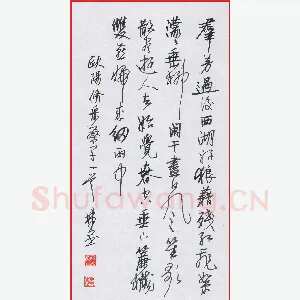 羣芳過後西湖好狼藉殘紅飛絮
濛〻垂柳闌干盡日風笙歌
散盡遊人去始覺春空垂下簾櫳
雙燕歸來細雨中
歐陽脩采桑子一首
Shufawang.CN